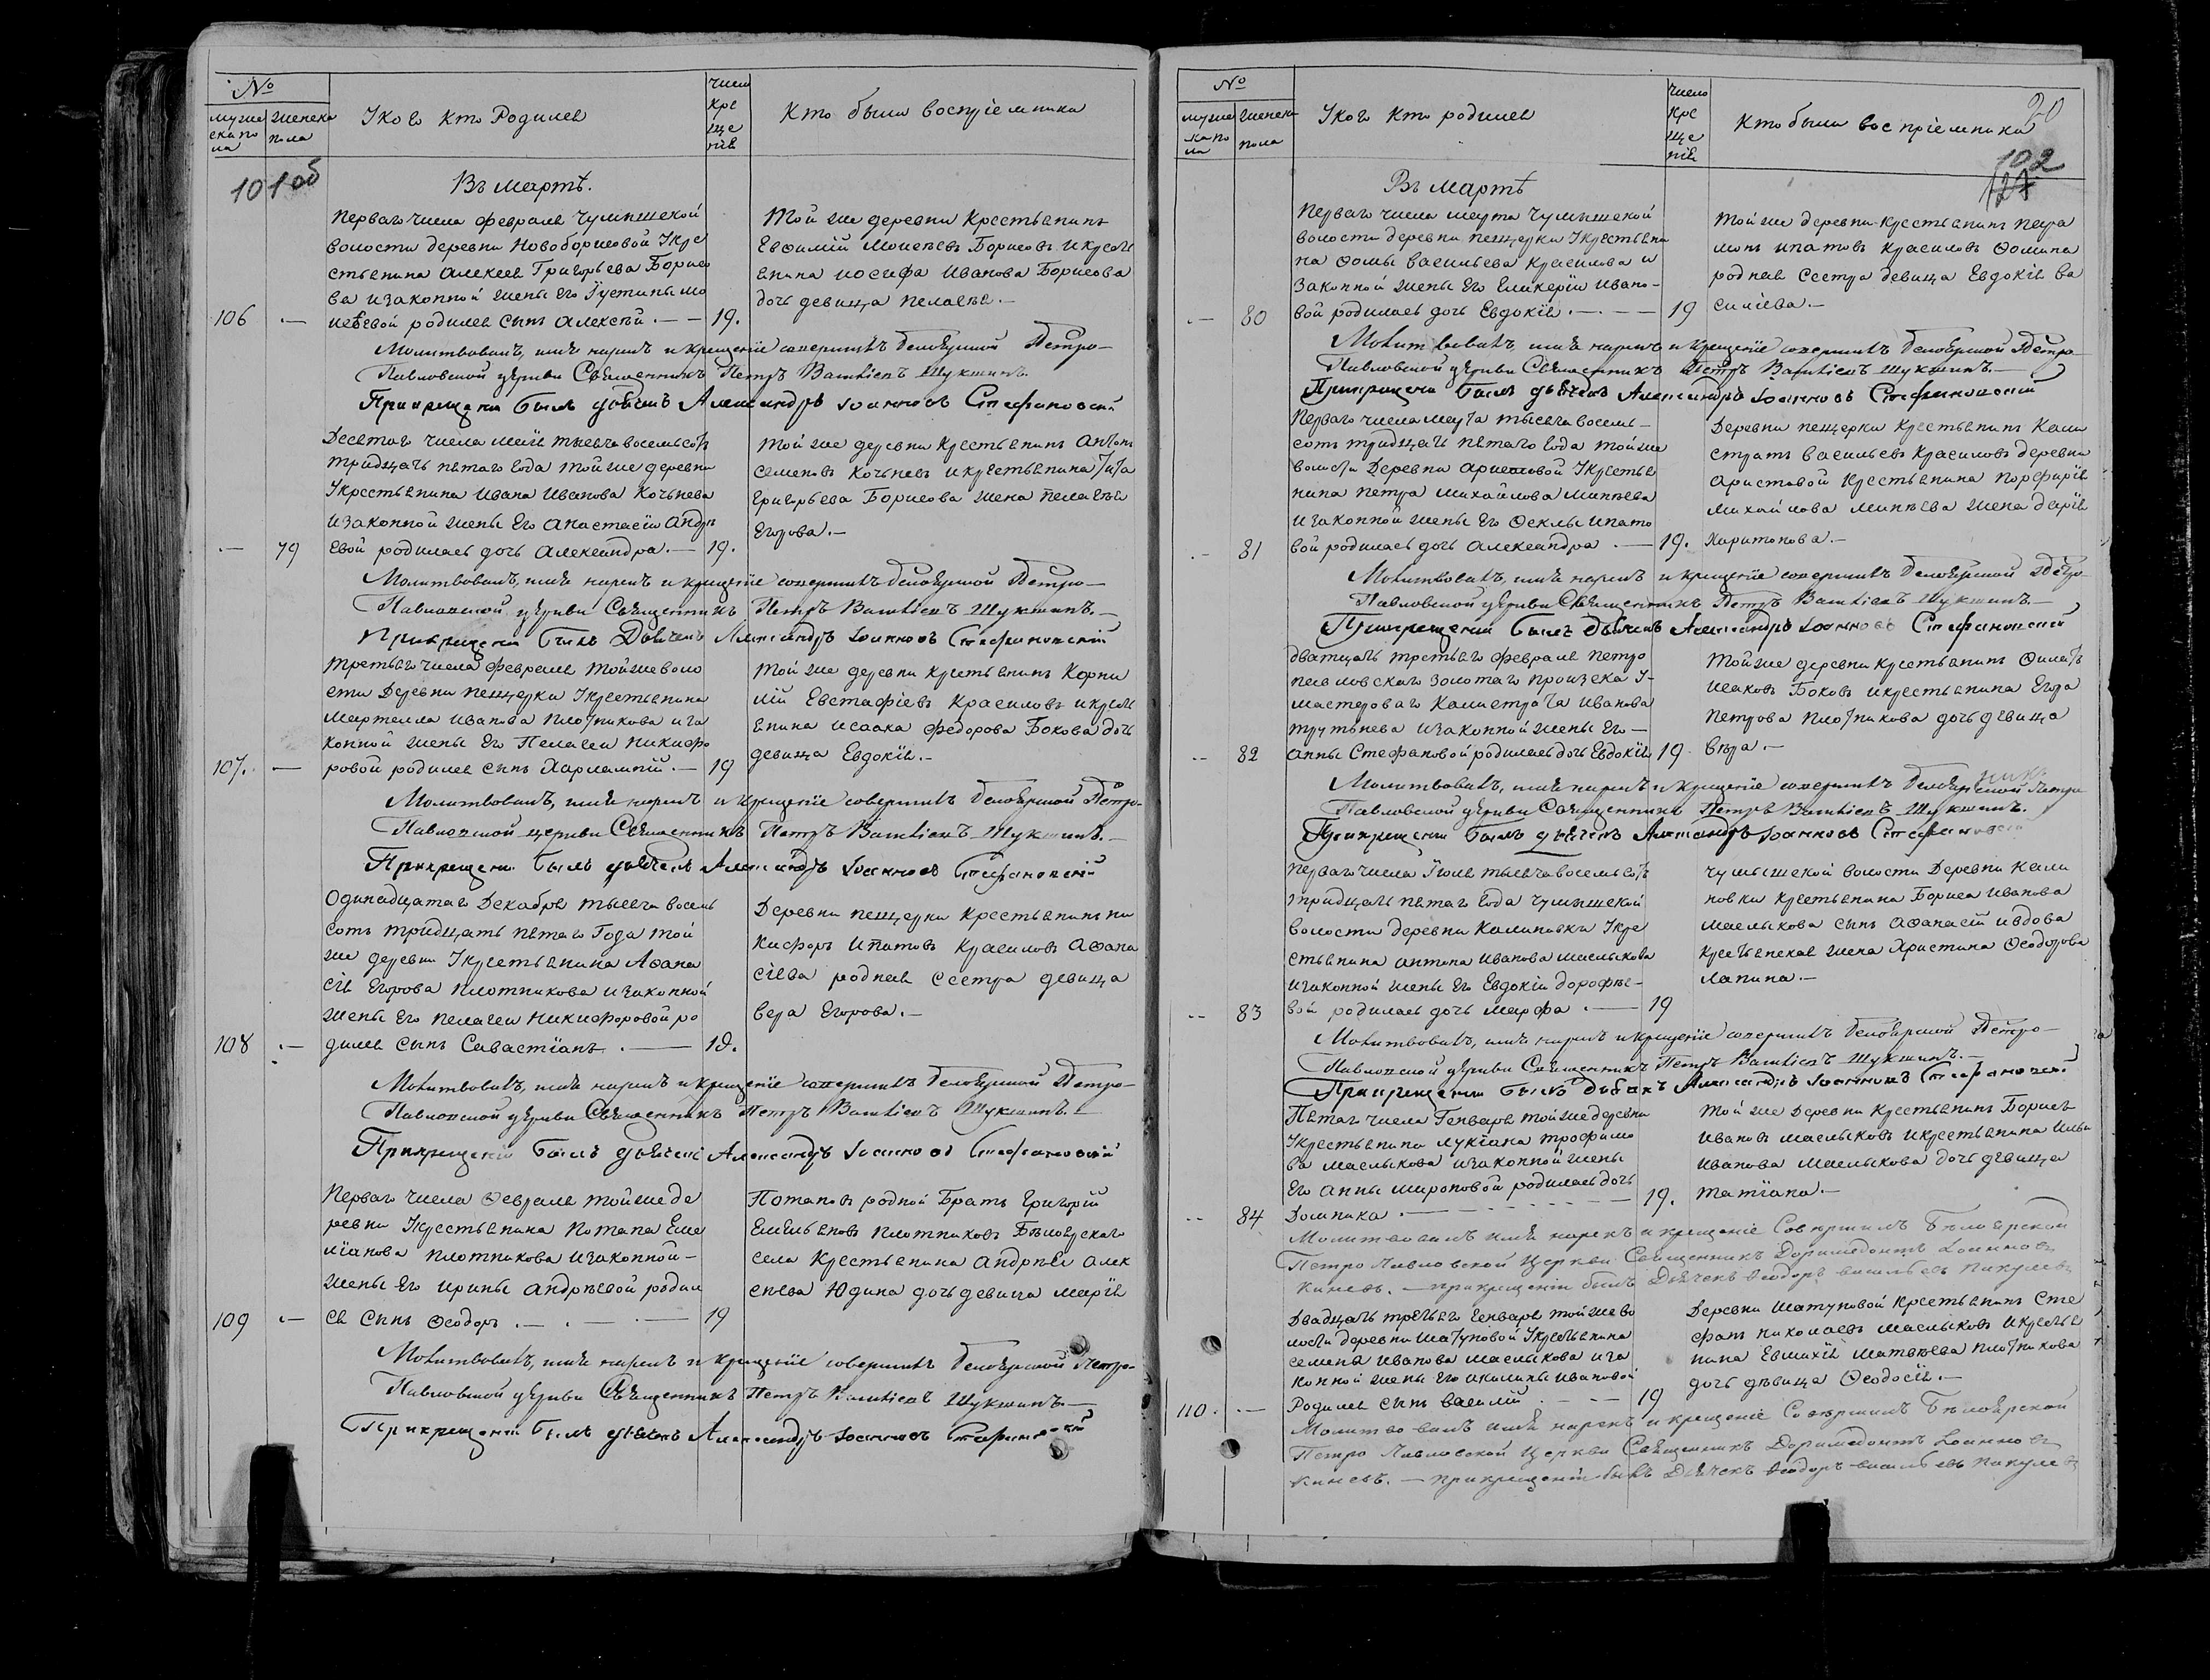 №
муже
ска по
ла
женска
пола
У кого кто Родился
Числ
Кре
ще
нія
Кто были воспріемники
101 об
Въ Мартѣ.
Перваго числа февраля Чумышской
волости деревни Новоборисовой У кре
стьянина Алексея Григорьева Борисо
ва и законной жены его Іустины Мо
исѣевой родился сынъ Алексѣй. — 19.
106 —
Той же деревни Крестьянинъ
Евфимій Моисѣевъ Борисовъ и кресть
янина Иосифа Иванова Борисова
дочь девица Пелагѣя. —
Молитвовалъ, имя нарекъ и крещеніе совершилъ Белоярской Петро-
Павловской церкви Священникъ Петръ Васильевъ Шукшинъ.
При крещеніи былъ дьячекъ Александръ Іоанновъ Стефановскій
Десятаго числа Маія тысяча восемьсотъ
тридцать пятаго года той же деревни
У крестьянина Ивана Иванова Кочьнева
и законной жены Его Анастасіи Андре
евой родилась дочь Александра. — 19.
— 79
Той же деревни Крестьянинъ Антонъ
Семеновъ Кочьневъ и крестьянина Тита
Григорьева Борисова жена Пелагѣя
Егорова. —
Молитвовалъ, имя нарекъ и крещеніе совершилъ Белоярской Петро-
Павловской церкви Священникъ Петръ Васильевъ Шукшинъ. —
При крещеніи былъ Дьячекъ Александръ Іоанновъ Стефановскій
Третьяго числа февраля той же воло
сти Деревни Пещерки У крестьянина
Мартемла Иванова Плотникова и за
конной жены Его Пелагеи Никифо
ровой родился сынъ Харлампій. — 19
107. —
Той же деревни крестьянинъ Корни
лій Евстафіевъ Красиловъ и кресть
янина Исаака Федорова Бокова дочь
девица Евдокія. —
Молитвовалъ, имя нарекъ и крещеніе совершилъ Белоярской Петро-
Павловской церкви Священникъ Петръ Васильевъ Шукшинъ. —
При крещеніи былъ дьячекъ Александръ Іоанновъ Стефановскій
Одинадцатаго Декабря тысяча восемь
сотъ тридцать пятаго Года той
же деревни У крестьянина Афана
сія Егорова Плотникова и законной
жены Его Пелагеи Никифоровой ро
дился сынъ Севастіанъ. — 19.
108 —
Деревни Пещерки Крестьянинъ Ни
кифоръ Ипатовъ Красиловъ Афана
сіева родная сестра девица
Вера Егорова. —
Молитвовалъ, имя нарекъ и крещеніе совершилъ Белоярской Петро-
Павловской церкви Священникъ Петръ Васильевъ Шукшинъ. —
При крещеніи былъ дьячекъ Александръ Іоанновъ Стефановскій
Перваго числа Февраля той же де
ревни У крестьянина Потапа Еме
ліанова Плотникова и законной —
жены Его Ирины Андрѣевой родил
ся сынъ Феодоръ. — . — 19
109 —
Потаповъ родной Братъ Григорій
Емельяновъ Плотниковъ Бѣлоярскаго
села Крестьянина Андрѣя Алек
сѣева Юдина дочь девица Марія
Молитвовалъ, имя нарекъ и крещеніе совершилъ Белоярской Петро-
Павловской церкви Священникъ Петръ Васильевъ Шукшинъ. —
При крещеніи былъ дьячекъ Александръ Іоанновъ Стефановскій
№
муже
ка по
ла
женска
пола
У кого кто родился
Число
Кре
ще
нія
Кто были воспріемники
20
102
127
Въ Мартѣ
Перваго числа Марта Чумышской
волости деревни Пещерки У крестьяни
на Фомы Васильева Красилова и
Законной жены Его Гликеріи Ивано-
вой родилась дочь Евдокія. — 19
— 80
Той же деревни крестьянинъ Пара
монъ Ипатовъ Красиловъ Фомина
родная Сестра девица Евдокія Ва
силіева. —
Молитвовалъ, имя нарекъ и крещеніе совершилъ Белоярской Петро-
Павловской церкви Священникъ Петръ Васильевъ Шукшинъ. —
При крещеніи былъ дьячекъ Александръ Іоанновъ Стефановскій
Перваго числа Марта тысяча восемь-
сотъ тридцать пятаго года той же
волости Деревни Аристовой У крестья
нина Петра Михайлова Минѣева
и законной жены Его Феклы Ипато
вой родилась дочь Александра. — 19.
— 81
Деревни Пещерки Крестьянинъ Кали
стратъ Васильевъ Красиловъ деревни
Аристовой Крестьянина Порфирія
Михайлова Минѣева жена Дарія
Харитонова. —
Молитвовалъ, имя нарекъ и крещеніе совершилъ Белоярской Петро-
Павловской церкви Священникъ Петръ Васильевъ Шукшинъ. —
При крещеніи былъ дьячекъ Александръ Іоанновъ Стефановскій
Дватцать третьяго февраля Петро
павловскаго золотаго произека У-
мастероваго Калистрата Иванова
Трутьнева и законной жены Его —
Анны Стефановой родилась дочь Евдокія 19
— 82
Той же деревни крестьянинъ Филатъ
Исаковъ Боковъ и крестьянина Егора
Петрова Плотникова дочь девица
Вѣра. —
Молитвовалъ, имя нарекъ и крещеніе совершилъ Белоярской Петро
Павловской церкви Священникъ Петръ Васильевъ Шукшинъ.
При крещеніи былъ дьячекъ Александръ Іоанновъ Стефановскій
Перваго числа Іюля тысяча восемьсотъ
тридцать пятаго года Чумышской
волости деревни Калиновки У кре
стьянина Антона Иванова Маслыкова
и законной жены Его Евдокіи Дорофѣе-
вой родилась дочь Марфа. — 19
— 83
Чумышской волости Деревни Кали
новки крестьянина Бориса Иванова
Маслыкова сынъ Афанасій и вдова
Крестьянская жена Христина Феодорова
Лапина. —
Молитвовалъ, имя нарекъ и крещеніе совершилъ Белоярской Петро —
Павловской церкви Священникъ Петръ Васильевъ Шукшинъ. —
При крещеніи былъ дьячекъ Александръ Іоанновъ Стефановскій
Пятаго числа Генваря той же деревни
У крестьянина Лукіана Трофимо
ва Маслыкова и законной жены
Его Анны Мироновой родилась дочь
Домника. — 19.
— 84
Той же Деревни Крестьянинъ Борисъ
Ивановъ Маслыковъ и крестьянина Ильи
Иванова Маслыкова дочь девица
Татіана. —
Молитвовалъ имя нарекъ и крещеніе Совершилъ Бѣлоярской
Петро Павловской Церкви Священникъ Доримедонтъ Іоанновъ
Киневъ. — при крещеніи былъ Дьячекъ Феодоръ Васильевъ Никулевъ
Двадцать третьяго Генваря той же во
лости деревни Шатуновой У крестьянина
Семена Иванова Маслыкова и за
конной жены Его Акилины Ивановой
Родился сынъ Василій — 19
110. —
Деревни Шатуновой Крестьянинъ Сте
фанъ Николаевъ Маслыковъ и кресть
янина Евтихія Матвѣева Плотникова
дочь дѣвица Феодосія. —
Молитвовалъ имя нарекъ и крещеніе Совершилъ Бѣлоярской
Петро Павловской Церкви Священникъ Доримедонтъ Іоанновъ
Киневъ. — при крещеніи былъ Дьячекъ Феодоръ Васильевъ Никулевъ